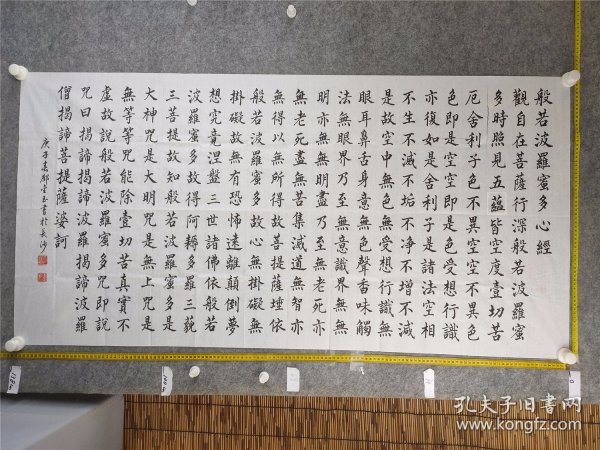 般若波羅蜜多心經
觀自在菩薩行深般若波羅蜜
多時照見五蘊皆空度壹切苦
厄舍利子色不異空空不異色
色即是空空即是色受想行識
亦復如是舍利子是諸法空相
不生不滅不垢不净不增不減
是故空中無色無受想行識無
眼耳鼻舌身意無色聲香味觸
法無眼界乃至無意識界無無
明亦無無明盡乃至無老死亦
無老死盡無苦集滅道無智亦
無得以無所得故菩提薩埵依
般若波羅蜜多故心無掛礙無
掛礙故無有恐怖遠離顛倒夢
想究竟涅盤三世諸佛依般若
波羅蜜多故得阿耨多羅三藐
三菩提故知般若波羅蜜多是
大神咒是大明咒是無上咒是
無等等咒能除壹切苦真實不
虛故說般若波羅蜜多咒即說
咒曰揭諦揭諦波羅揭諦波羅
僧揭諦菩提薩婆訶
庚子春書於長沙
孔夫子旧书网
www.kongfz.com